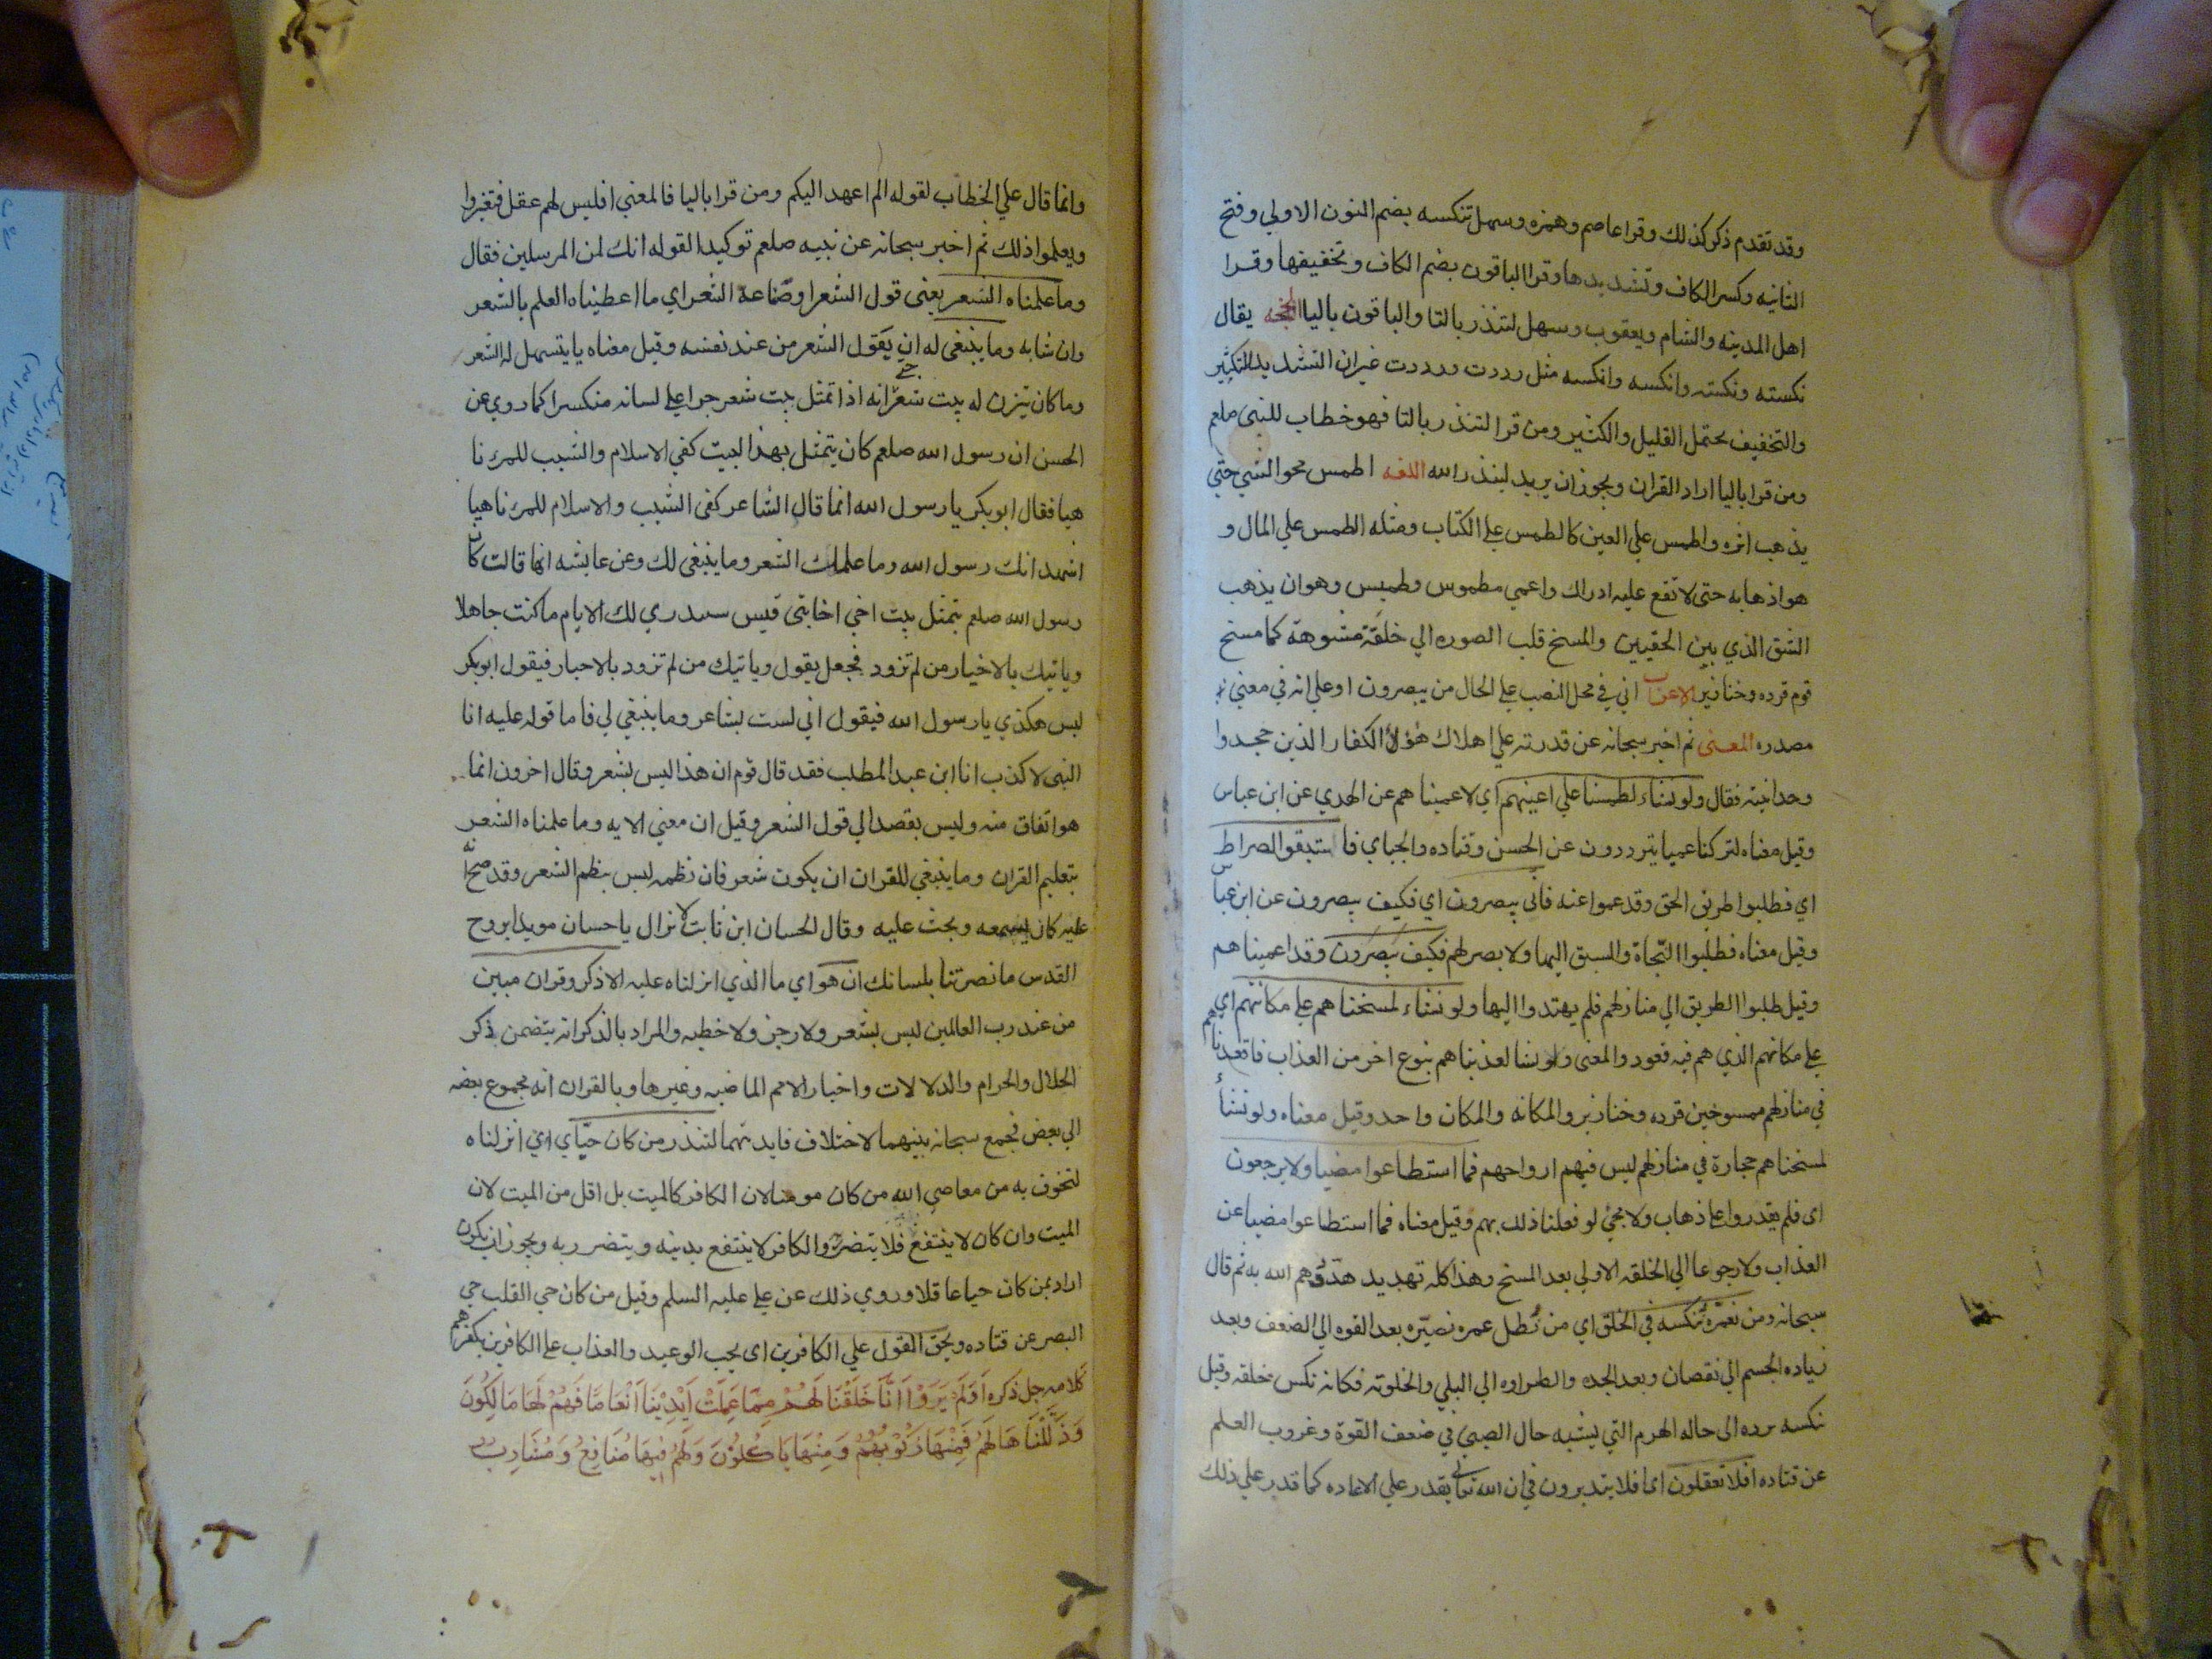 وقد تقدم ذكر كذلك وقرا عاصم وحمزه وسهل تنكسه بضم النون الاولي وفتح
الثانيه وكسر الكاف وتشديدها وقرا الباقون بضم الكاف وتخفيفها وقرا
اهل المدينه والشام ويعقوب وسهل لتنذر بالتا والباقون باليا الحجه يقال
نكسته ونكسته وانكسه وانكسه مثل رددت ورددت غير ان التشديد للتكثير
والتخفيف يحتمل القليل والكثير ومن قرا لتنذر بالتا فهو خطاب للنبي صلعم
ومن قرا باليا اراد القران ويجوز ان يريد لينذر الله اللغه الطمس محو الشي حتي
يذهب اثره والطمس علي العين كالطمس علي الكتاب ومثله الطمس علي المال و
هو اذهابه حتي لا تقع عليه ادراك واعمي مطموس وطميس وهو ان يذهب
الشق الذي بين الجفنين والمسخ قلب الصوره الي خلقة مشوهة كما مسخ
قوم قرده وخنازير الاعراب اني في محل النصب علي الحال من يبصرون او علي انه في معني
مصدره المعنى ثم اخبر سبحانه عن قدرته علي اهلاك هؤلأ الكفار الذين جحدوا
وحدانيته فقال ولو نشاء لطمسنا علي اعينهم اي لاعميناهم عن الهدي عن ابن عباس
وقيل معناه لتركنا عميا يترددون عن الحسن وقتاده والجباي فاستبقوا الصراط
اي فطلبوا طريق الحق وقد عموا عنه فانّي يبصرون اي فكيف يبصرون عن ابن عباس
وقيل معناه فطلبوا النّجاة والسبق اليها ولا بصر لهم فكيف يُبْصرُون وقد اعميناهم
وقيل طلبوا الطريق الي منازلهم فلم يهتدوا اليها ولو نشاء لمسخناهم علي مكانتهم اي
علي مكانهم الذي هم فيه قعود والمعنى ولو نشا لعذبناهم بنوع اخر من العذاب فاقعدناهم
في منازلهم ممسوخين قرده وخنازير والمكانه والمكان واحد وقيل معناه ولو نشأ
لمسخناهم حجارة في منازلهم ليس فيهم ارواحهم فما استطاعوا مضيا ولا يرجعون
اى فلم يقدروا علي ذهاب ولا مجئ لو فعلنا ذلك بهم وقيل معناه فما استطاعوا مضيا عن
العذاب ولا رجوعا الي الخلقه الاولي بعد المسخ وهذا كله تهديد هدّدهم الله به ثم قال
سبحانه ومن نعمّره نُنكّسه في الخلق اي من نُطل عمره نصيّره بعد القوه الي الضعف وبعد
زياده الجسم الي نقصان وبعد الجده والطراوه الي البلي والخلوقه فكانه نكس خلقه وقيل
ننكسه نرده الى حاله الهرم التي يشبه حال الصبي في ضعف القوة وغروب العلم
عن قتاده افلا تعقلون اى افلا يتدبرون في ان الله تعالي يقدر علي الاعاده كما قدر علي ذلك
وانما قال علي الخطاب لقوله الم اعهد اليكم ومن قرا باليا فالمعني افليس لهم عقل فيعتبروا
ويعلموا ذلك ثم اخبر سبحانه عن نبيه صلعم توكيدا لقوله انك لمن المرسلين فقال
وما علمناه الشعر يعني قول الشعرا وصناعة الشعر اي ما اعطيناه العلم بالشعر
وانشابه وما ينبغي له ان يَقول الشعر من عند نفسه وقيل معناه ما يتسهل له الشعر
وما كان يتزن له بيت شعر حتي انه اذا تمثل بيت شعر جرا علي لسانه منكسرا كما روي عن
الحسن ان رسول الله صلعم كان يتمثل بهذا البيت كفي الاسلام والشيب للمرء نا
هيا فقال ابو بكر يا رسول الله انما قال الشاعر كفى الشيب والاسلام للمرء ناهيا
اشهد انك رسول الله وما علمك الشعر وما ينبغي لك وعن عايشه انها قالت كان
رسول الله صلعم يتمثل بيت اخي اخا بني قيس ستبدي لك الايام ما كنت جاهلا
وياتيك بالاخبار من لم تزود فجعل يقول وياتيك من لم تزود بالاخبار فيقول ابو بكر
ليس هكذي يا رسول الله فيقول اني لست بشاعر وما ينبغي لي فاما قوله عليه انا
النبى لا كذب انا ابن عبد المطلب فقد قال قوم ان هذا ليس بشعر وقال اخرون انما
هو اتفاق منه وليس بقصد الي قول الشعر وقيل ان معني الايه وما علمناه الشعر
بتعليم القران وما ينبغي للقران ان يكون شعر فان نظمه ليس بنظم الشعر وقد صح انه
عليه كان يسمعه ويحث عليه وقال لحسان ابن ثابت لا تزال يا حسان مويدا بروح
القدس ما نصرتنا بلسانك ان هو اي ما الذي انزلناه عليه الا ذكر وقران مبين
من عند رب العالمين ليس بشعر ولا رجز ولا خطبه والمراد بالذكر انه يتضمن ذكر
الحلال والحرام والدلالات واخبار الامم الماضيه وغيرها وبالقران انه مجموع بعضه
الي بعض فجمع سبحانه بينهما لاختلاف فايدتهما لتنذر من كان حيّا اي انزلناه
لتخوف به من معاصي الله من كان مومنا لان الكافر كالميت بل اقل من الميت لان
الميت وان كان لا ينتفع فلا يتضرر والكافر لا ينتفع بدينه ويتضرر به ويجوز ان يكون
اراد بمن كان حيا عاقلا وروي ذلك عن علي عليه السلم وقيل من كان حي القلب حي
البصر عن قتاده ويحق القول علي الكافرين اى يجب الوعيد والعذاب علي الكافرين بكفرهم
كلامه جل ذكره اَوَلَمْ يَرَوْا اَنَّا خَلَقْنَا لَهُمْ مِمَّا عَمِلَتْ اَيْدِيْنَا اَنْعَامًا فَهُمْ لَهَا مَالِكُونَ
وَذَلَّلْنَاهَا لَهُمْ فَمِنْهَا رَكُوْبُهُمْ وَمِنْهَا يَاكُلُوْنَ وَلَهُمْ فِيهَا مَنَافِعُ وَمَشَارِبُ